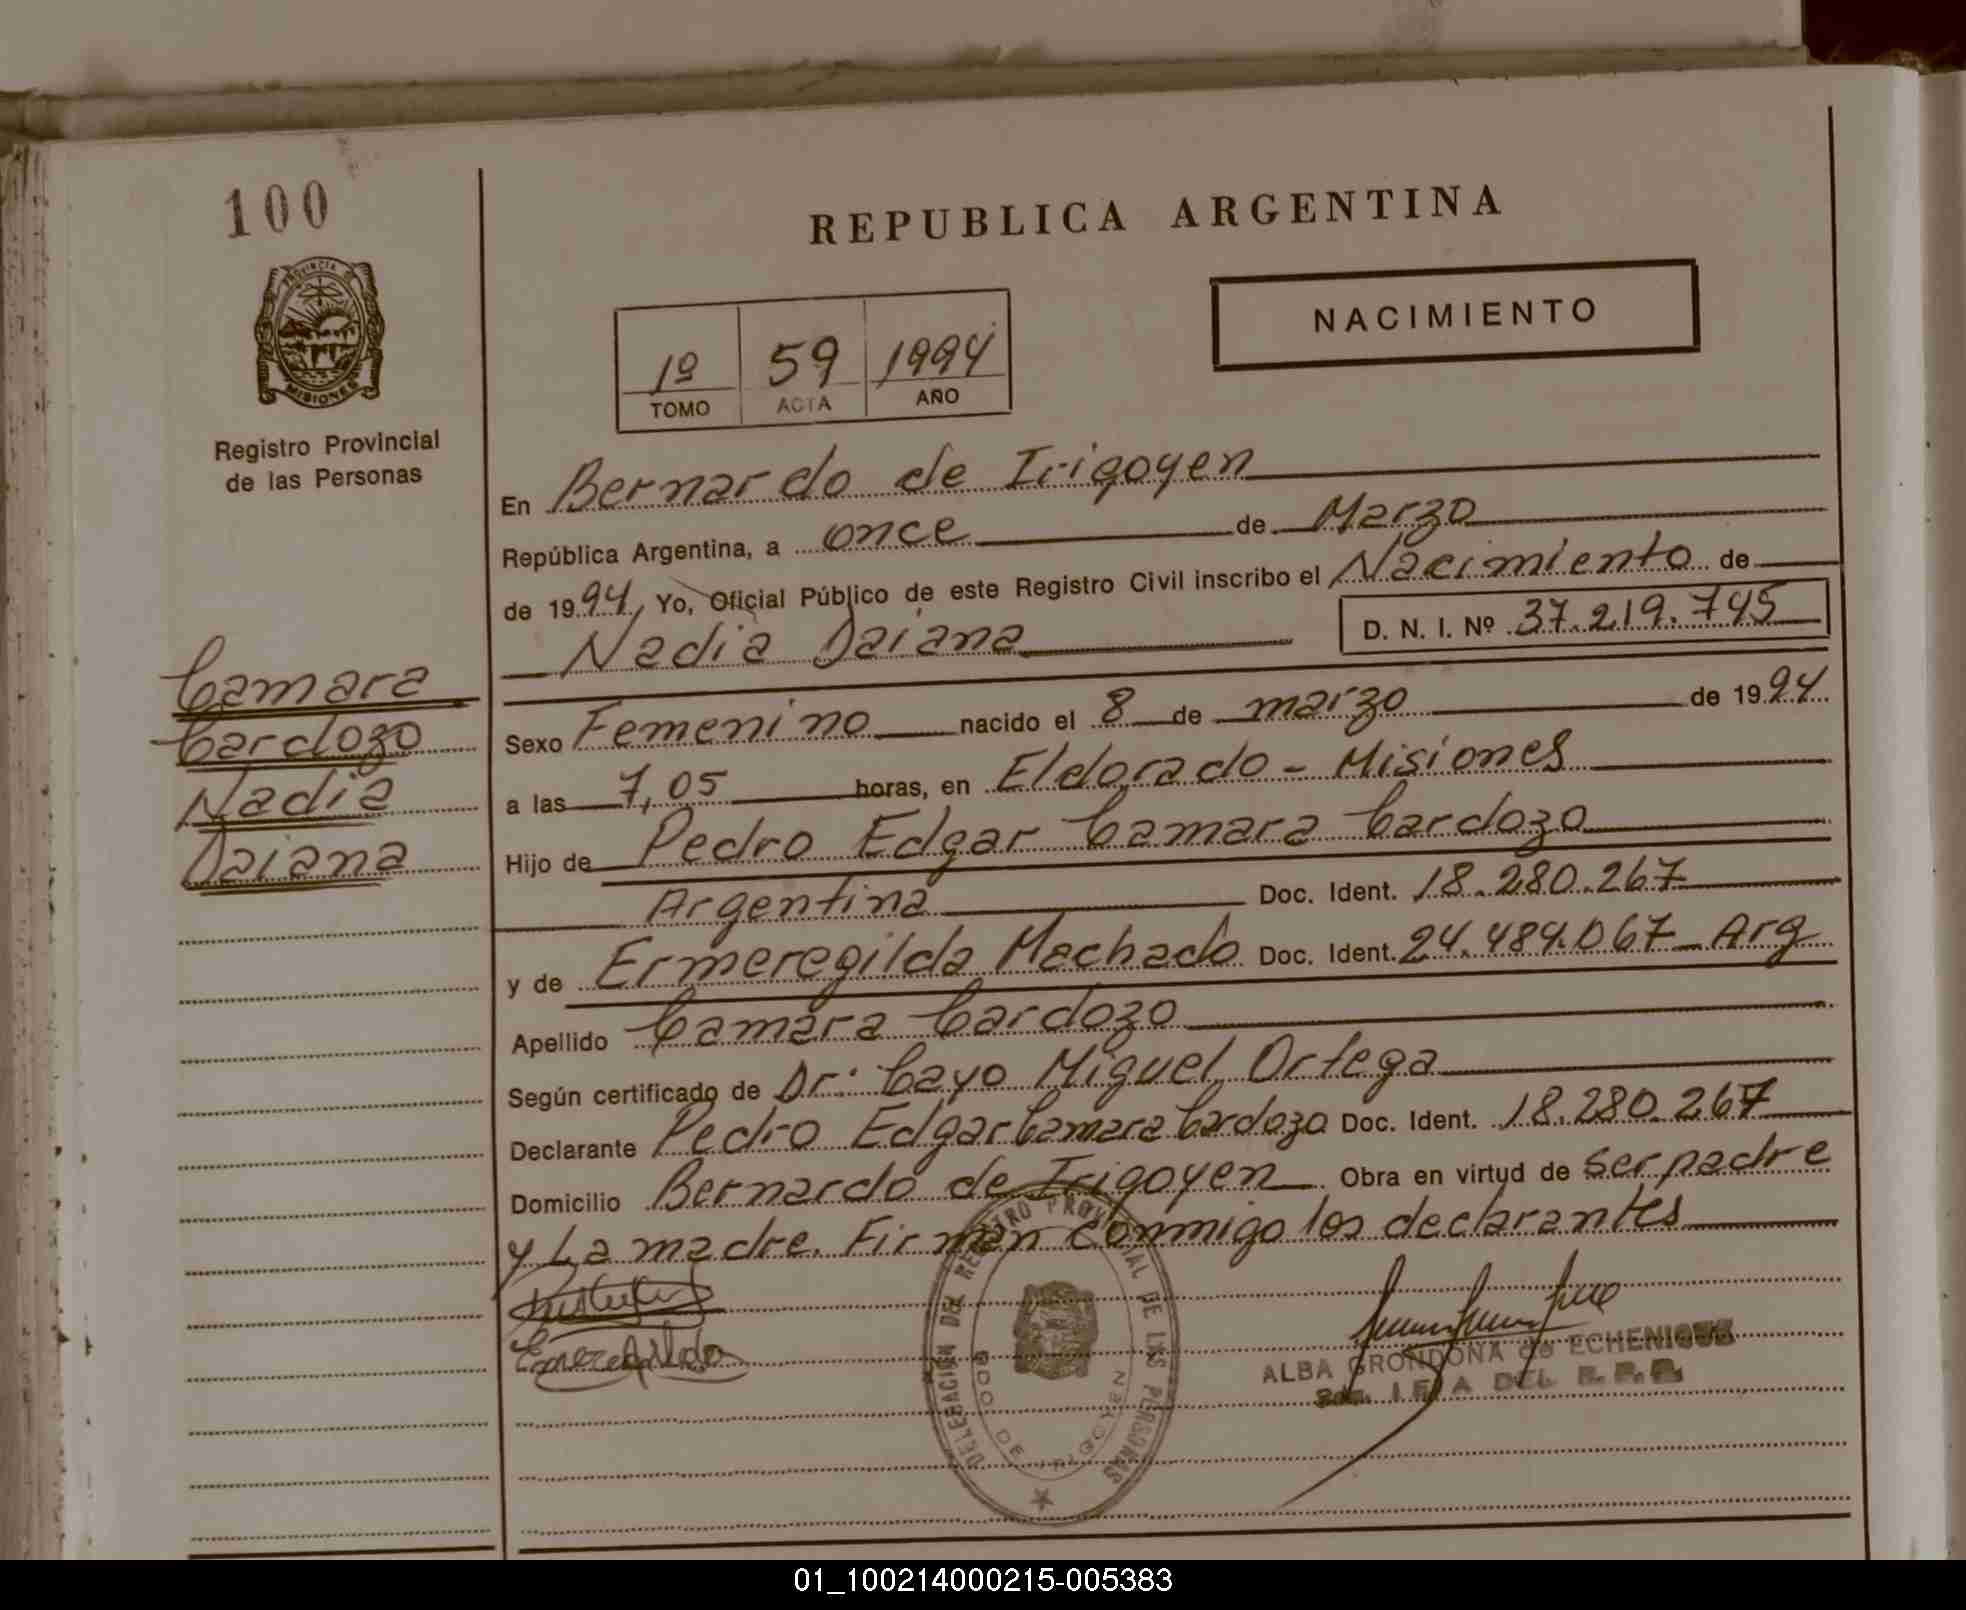 100
PROVINCIA DE
MISIONES
Registro Provincial
de las Personas
Camara
Cardozo
Nadia
Daiana
REPUBLICA ARGENTINA
NACIMIENTO
1º 59 1994
TOMO ACTA AÑO
En Bernardo de Irigoyen
República Argentina, a once de Marzo
de 1994, Yo, Oficial Público de este Registro Civil inscribo el Nacimiento de
Nadia Daiana D. N. I. Nº 37.219.745
Sexo Femenino nacido el 8 de marzo de 1994
a las 7,05 horas, en Eldorado - Misiones
Hijo de Pedro Edgar Camara Cardozo
Argentina Doc. Ident. 18.280.267
y de Ermeregilda Machado Doc. Ident. 24.484.067 - Arg
Apellido Camara Cardozo
Según certificado de Dr. Cayo Miguel Ortega
Declarante Pedro Edgar Camara Cardozo Doc. Ident. 18.280.267
Domicilio Bernardo de Irigoyen Obra en virtud de ser padre
y La madre. Firman conmigo los declarantes
DELEGACIÓN DEL REGISTRO PROVINCIAL DE LAS PERSONAS
BDO DE IRIGOYEN
ALBA GRONDONA de ECHENIQUE
DEL R.P.P.
01_100214000215-005383